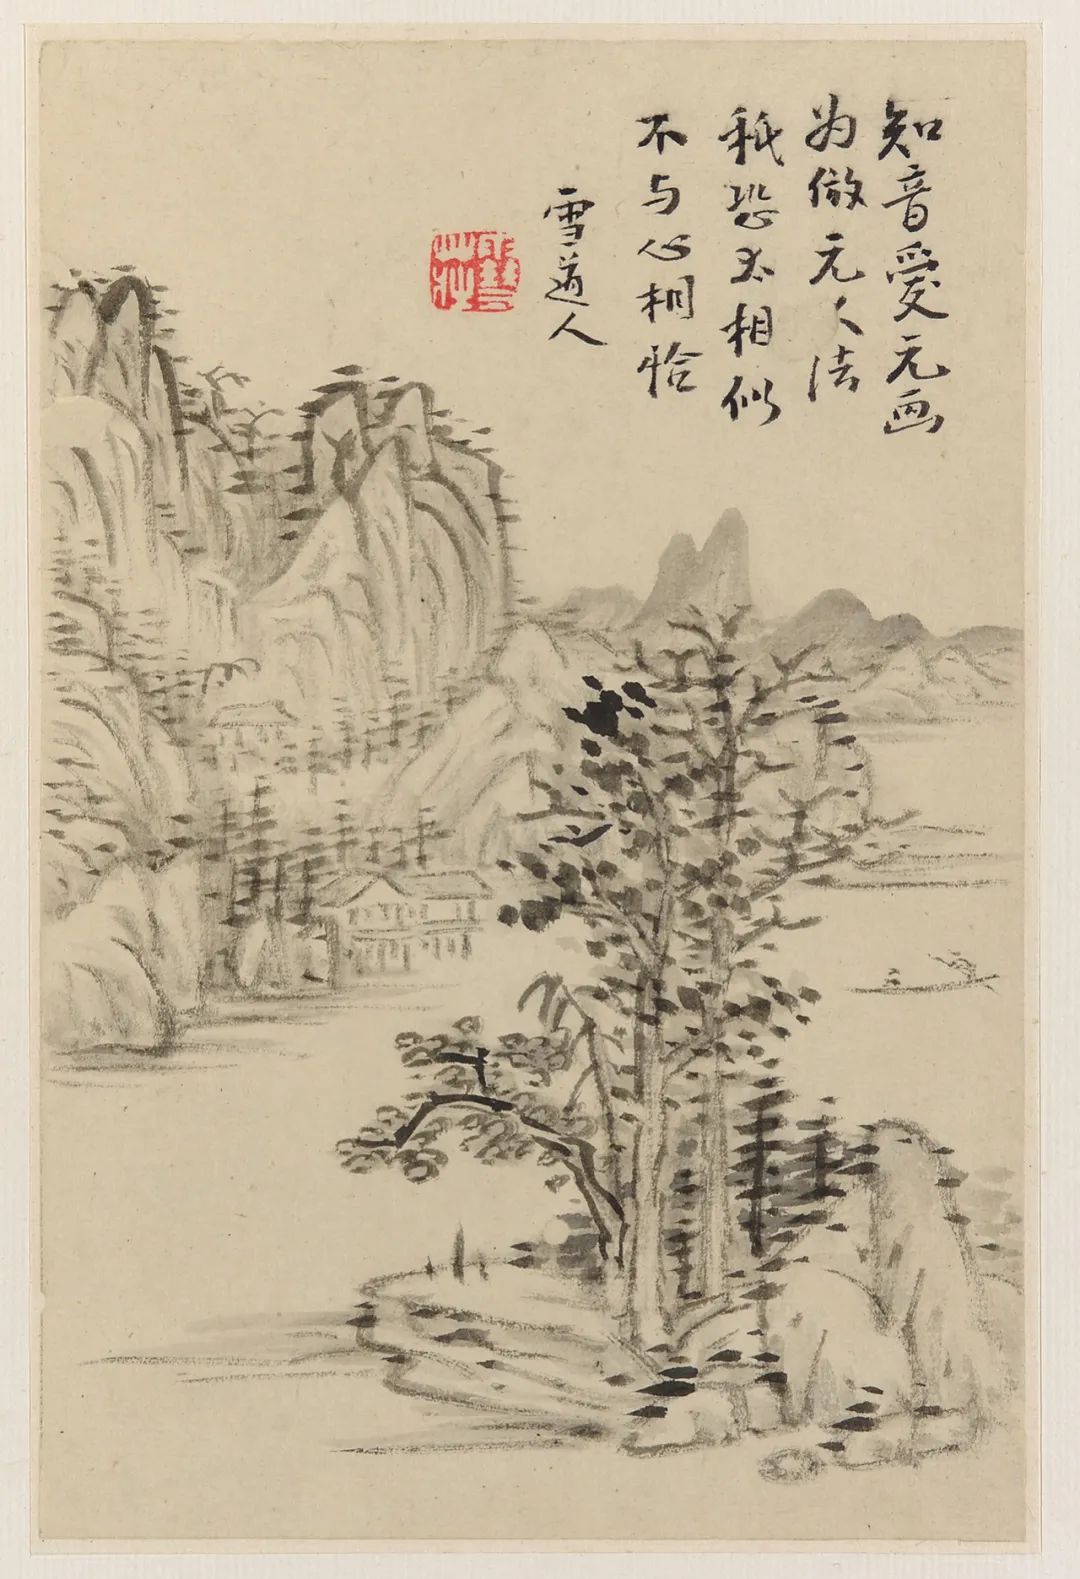 知音愛元画
为倣元人法
秖恐太相似
不与心相恰
雪道人